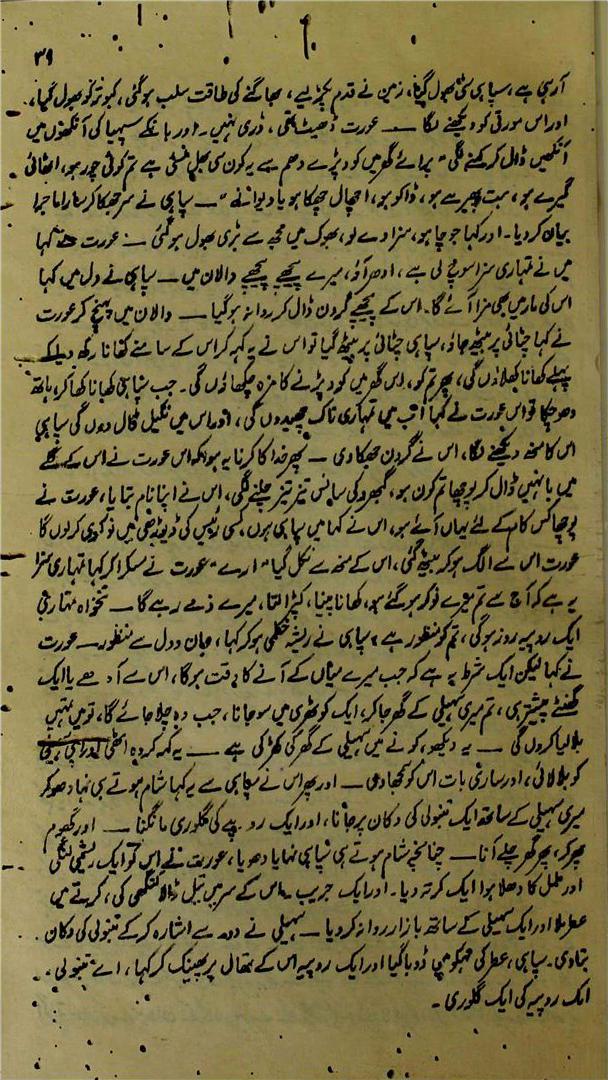 ۳۹
آرہی ہے، سپاہی سٹی بھول گیا، زمین نے قدم پکڑ لیے، بھاگنے کی طاقت سلب ہو گئی، کبوتر کو بھول گیا،
اور اس مورتی کو دیکھنے لگا — عورت ڈھیٹ تھی، ڈری نہیں۔ اور بانکے سپہیا کی آنکھوں میں
آنکھیں ڈال کر کہنے لگی "پرائے گھر میں کود پڑے دھم سے یہ کون سی بھلی منسئی ہے تم کوئی چور ہو، اٹھائی
گیرے ہو، ہو، ڈاکو ہو، اچھال چھکا ہو یا دیوانے" — سپاہی نے سر جھکا کر سارا ماجرا
بیان کر دیا۔ اور کہا جو چاہو، سزا دے لو، بھوک میں مجھ سے بڑی بھول ہو گئی — عورت نے کہا
میں نے تمہاری سزا سوچ لی ہے، ادھر آؤ، میرے پیچھے پیچھے والان میں — سپاہی نے دل میں کہا
اس کی مار میں بھی مزا آئے گا۔ اس کے پیچھے گردن ڈال کر روانہ ہو گیا — والان میں پہنچ کر عورت
نے کہا چٹائی پر بیٹھ جاؤ، سپاہی چٹائی پر بیٹھ گیا تو اس نے یہ کہہ کر اس کے سامنے کھانا رکھ دیا کہ
پہلے کھانا کھلاؤں گی، پھر تم کو، اس گھر میں کود پڑنے کا مزہ چکھاؤں گی۔ جب سپاہی کھانا کھا کر، ہاتھ
دھو چکا تو اس عورت نے کہا اب میں تمہاری ناک چھیدوں گی، اور اس میں نکیل ڈال دوں گی سپاہی
اس کا منھ دیکھنے لگا، اس نے گردن جھکا دی — پھر خدا کا کرنا یہ ہوا کہ اس عورت نے اس کے گلے
میں باہنیں ڈال کر پوچھا تم کون ہو، گبھرو کی سانس تیز تیز چلنے لگی، اس نے اپنا نام بتایا، عورت نے
پوچھا کس کام کے لئے یہاں آئے ہو، اس نے کہا میں سپاہی ہوں، کسی رئیس کی ڈیوڑھی میں نوکری کر لوں گا
عورت اس سے الگ ہو کر بیٹھ گئی، اس کے منھ سے نکل گیا "ارے" عورت نے مسکرا کر کہا تمہاری سزا
یہ ہے کہ آج سے تم میرے نوکر ہو گئے ہو، کھانا پینا، کپڑا لتا، میرے ذمے رہے گا — تنخواہ تمہاری
ایک روپیہ روز ہو گی، تم کو منظور ہے؟ سپاہی نے ریشہ خطمی ہو کر کہا، جان و دل سے منظور — عورت
نے کہا لیکن ایک شرط یہ ہے کہ جب میرے میاں کے آنے کا وقت ہو گا، اس سے آدھے یا ایک
گھنٹے پیشتر ہی، تم میری سہیلی کے گھر جا کر، ایک کوٹھری میں سو جانا، جب وہ چلا جائے گا، تو میں تمہیں
بلا لیا کروں گی — یہ دیکھو، کونے میں سہیلی کے گھر کی کھڑکی ہے — یہ کہہ کر وہ اٹھی اور اپنی سہیلی
کو بلا لائی، اور ساری بات اس کو سمجھا دی — اور پھر اس نے سپاہی سے یہ کہا شام ہوتے ہی نہا دھو کر
میری سہیلی کے ساتھ ایک تنبولی کی دکان پر جانا، اور ایک روپے کی گلوری مانگنا — اور گھوم
پھر کر، پھر گھر چلے آنا — چنانچہ شام ہوتے ہی سپاہی نہایا دھویا، عورت نے اس کو ایک ریشمی لنگی
اور ململ کا دھلا ہوا ایک کرتہ دیا۔ اور ایک جریب۔ اس کے سر میں تیل ڈالا کنگھی کی، کرتے میں
عطر ملا اور ایک سہیلی کے ساتھ بازار روانہ کر دیا — سہیلی نے دور سے اشارہ کر کے تنبولی کی دکان
بتا دی۔ سپاہی، عطر کی مہکو میں ڈوبا گیا اور ایک روپیہ اس کے تھال پر پھینک کر کہا، اے تنبولی،
ایک روپیہ کی ایک گلوری۔